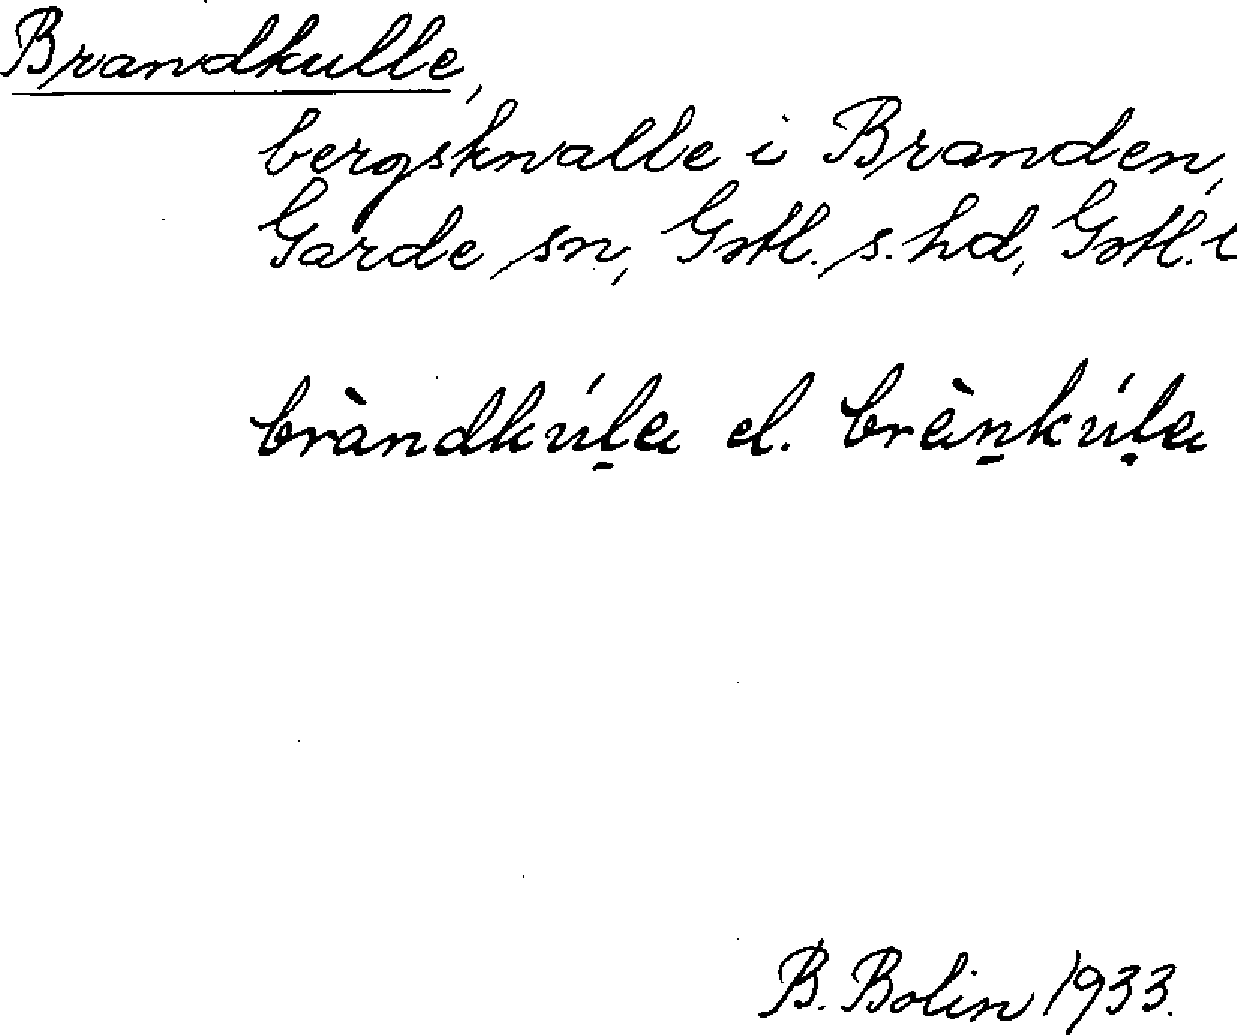 Brandkulle,
bergsknalle i Branden,
Garde sn, Gotl. s. hd, Gotl. l
bràndkúl̠a el. bràn̠kúl̠a
B. Bolin 1933.